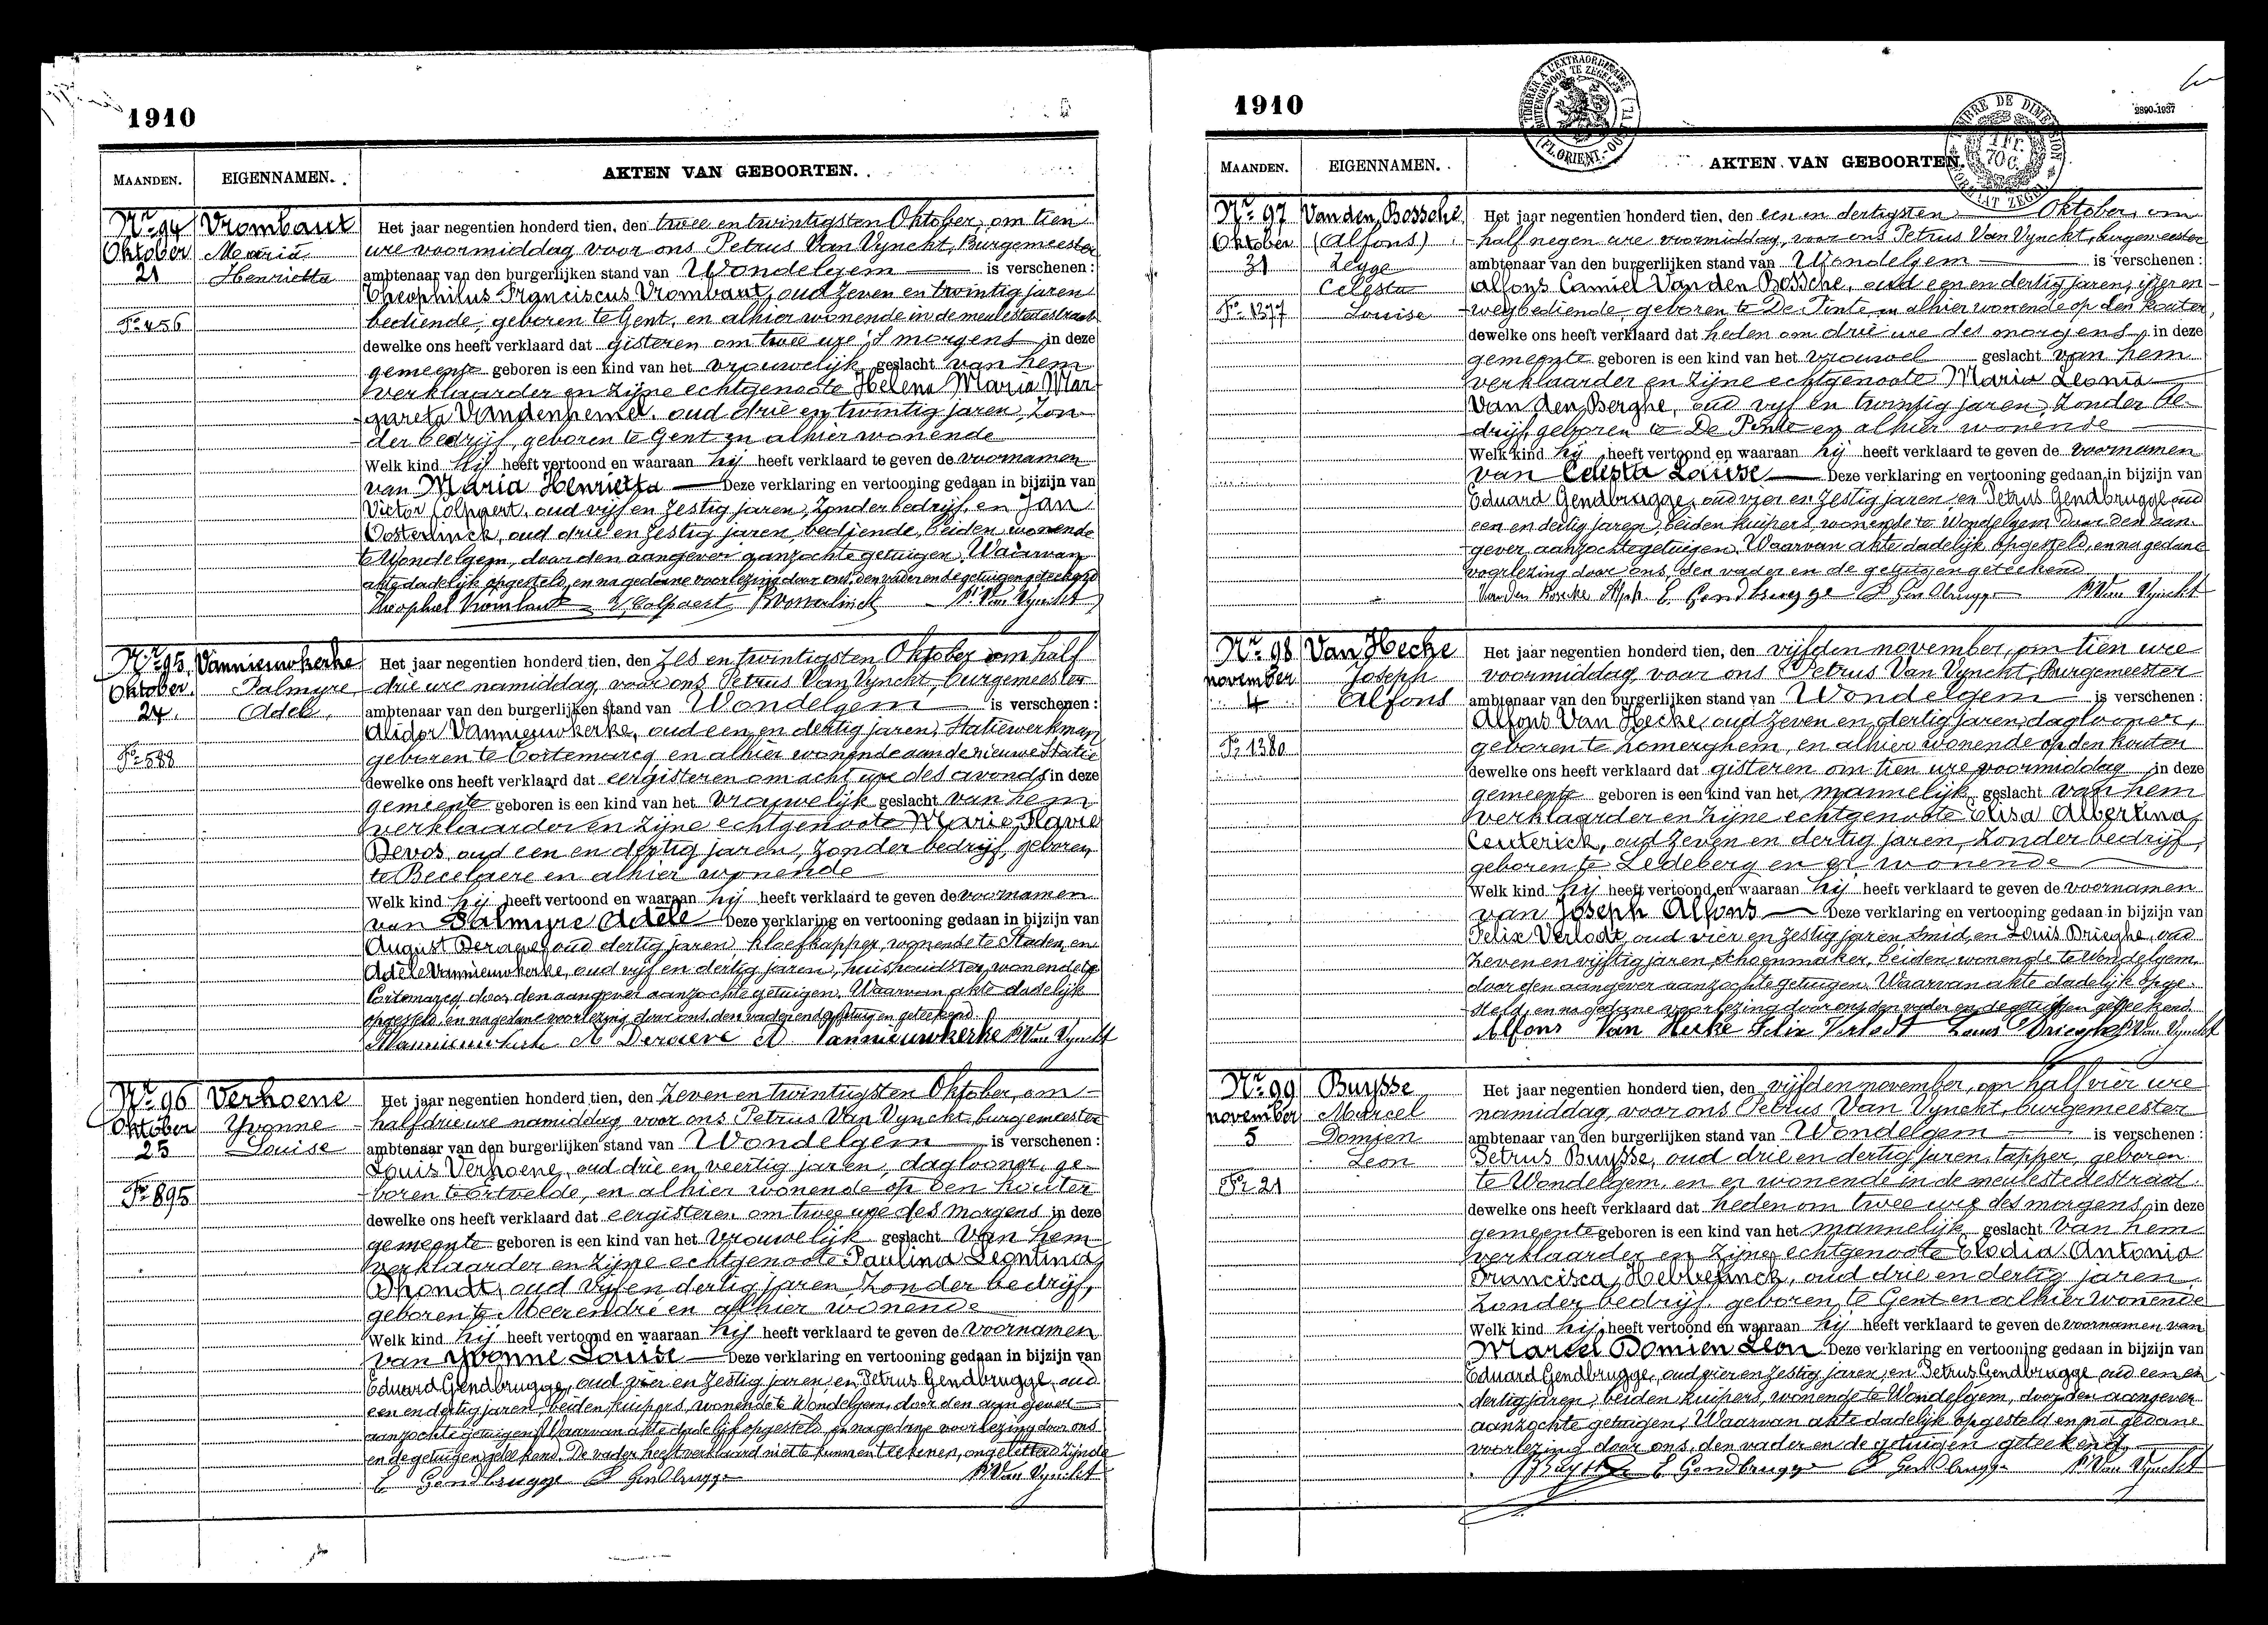 1910
MAANDEN. EIGENNAMEN. AKTEN VAN GEBOORTEN.
Nr 94
Oktober
21
Fo 456
Vrombaut
Maria
Henrietta
Het jaar negentien honderd tien, den twee en twintigsten Oktober, om tien
ure voormiddag voor ons Petrus Van Vynckt, Burgemeester
ambtenaar van den burgerlijken stand van Wondelgem is verschenen:
Theophilus Franciscus Vrombaut, oud zeven en twintig jaren
bediende, geboren te Gent, en alhier wonende in de meulestedestraat
dewelke ons heeft verklaard dat gisteren om twee ure 's morgens in deze
gemeente geboren is een kind van het vrouwelijk geslacht van hem
verklaarder en zijne echtgenoote Helena Maria Mar-
gareta Vandenhemel, oud drie en twintig jaren, zon-
der bedrijf, geboren te Gent en alhier wonende
Welk kind hij heeft vertoond en waaraan hij heeft verklaard te geven de voornamen
van Maria Henrietta Deze verklaring en vertooning gedaan in bijzijn van
Victor Colpaert, oud vijf en zestig jaren, zonder bedrijf, en Jan
Oosterlinck, oud drie en zestig jaren, bediende, beiden wonende
te Wondelgem, door den aangever aanzochte getuigen. Waarvan
akte dadelijk opgesteld, en na gedane voorlezing door ons, den vader en de getuigen geteekend
Theophiel Vrombaut V Colpaert Oosterlinck P. Van Vynckt
Nr 95
Oktober
24
Fo 588
Vannieuwkerke
Palmyre
Adèle
Het jaar negentien honderd tien, den zes en twintigsten Oktober om half
drie ure namiddag, voor ons Petrus Van Vynckt, burgemeester
ambtenaar van den burgerlijken stand van Wondelgem is verschenen:
Alidor Vannieuwkerke, oud een en dertig jaren, statiewerkman
geboren te Cortemarcq en alhier wonende aan de nieuwe Statie
dewelke ons heeft verklaard dat eergisteren om acht ure des avonds in deze
gemeente geboren is een kind van het vrouwelijk geslacht van hem
verklaarder en zijne echtgenoote Marie Flavie
Devos, oud een en dertig jaren, zonder bedrijf, geboren
te Becelaere en alhier wonende
Welk kind hij heeft vertoond en waaraan hij heeft verklaard te geven de voornamen
van Palmyre Adèle Deze verklaring en vertooning gedaan in bijzijn van
August Deraeve, oud dertig jaren, kloefkapper, wonende te Staden, en
Adèle Vannieuwkerke, oud vijf en dertig jaren, huishoudster, wonende te
Cortemarcq, door den aangever aanzochte getuigen. Waarvan akte dadelijk
opgesteld, en na gedane voorlezing door ons, den vader en de getuigen geteekend.
AVannieuwkerke A Deraeve A Vannieuwkerke P. Van Vynckt
Nr 96
Oktober
25
Fo 895
Verhoene
Yvonne
Louise
Het jaar negentien honderd tien, den zeven en twintigsten Oktober, om
half drie ure namiddag voor ons Petrus Van Vynckt, burgemeester
ambtenaar van den burgerlijken stand van Wondelgem is verschenen:
Louis Verhoene, oud drie en veertig jaren, daglooner, ge-
boren te Ertvelde, en alhier wonende op den kouter
dewelke ons heeft verklaard dat eergisteren om twee ure des morgens in deze
gemeente geboren is een kind van het vrouwelijk geslacht van hem
verklaarder en zijne echtgenoote Paulina Leontina
Dhondt, oud vijf en dertig jaren, zonder bedrijf,
geboren te Meerendré en alhier wonende
Welk kind hij heeft vertoond en waaraan hij heeft verklaard te geven de voornamen
van Yvonne Louise Deze verklaring en vertooning gedaan in bijzijn van
Eduard Gendbrugge, oud vier en zestig jaren, en Petrus Gendbrugge, oud
een en dertig jaren, beiden kuipers, wonende te Wondelgem, door den aangever
aanzochte getuigen. Waarvan akte dadelijk opgesteld en na gedane voorlezing door ons
en de getuigen geteekend. De vader heeft verklaard niet te kunnen teekenen, ongeletterd zijnde
E Gendbrugge P Gendbrugge P. Van Vynckt
1910
2890-1937
TIMBRER A L'EXTRAORDINAIRE
BUITENGEWOON TE ZEGELEN
(FL. ORIENT.-OOST VL.)
TIMBRE DE DIMENSION
1 Fr.
70 C.
FORMAAT ZEGEL
MAANDEN. EIGENNAMEN. AKTEN VAN GEBOORTEN.
Nr 97
Oktober
31
Fo 1377
Van den Bossche
(Alfons)
Celesta
Louise
Het jaar negentien honderd tien, den een en dertigsten Oktober, om
half negen ure voormiddag, voor ons Petrus Van Vynckt, burgemeester
ambtenaar van den burgerlijken stand van Wondelgem is verschenen:
Alfons Camiel Van den Bossche, oud een en dertig jaren, ijzeren-
wegbediende, geboren te De Pinte en alhier wonende op den kouter
dewelke ons heeft verklaard dat heden om drie ure des morgens, in deze
gemeente geboren is een kind van het vrouwel geslacht van hem
verklaarder en zijne echtgenoote Maria Leonia
Van den Berghe, oud vijf en twintig jaren, zonder be-
drijf, geboren te De Pinte en alhier wonende
Welk kind hij heeft vertoond en waaraan hij heeft verklaard te geven de voornamen
van Celesta Louise Deze verklaring en vertooning gedaan in bijzijn van
Eduard Gendbrugge, oud vier en zestig jaren, en Petrus Gendbrugge, oud
een en dertig jaren, beiden kuipers, wonende te Wondelgem door den aan-
gever aanzochte getuigen. Waarvan akte dadelijk opgesteld, en na gedane
voorlezing door ons, den vader en de getuigen geteekend
Van den Bossche Alph E Gendbrugge P Gendbrugge P. Van Vynckt
Nr 98
november
4
Fo 1380
Van Hecke
Joseph
Alfons
Het jaar negentien honderd tien, den vijfden november, om tien ure
voormiddag voor ons Petrus Van Vynckt, Burgemeester
ambtenaar van den burgerlijken stand van Wondelgem is verschenen:
Alfons Van Hecke, oud zeven en dertig jaren, daglooner,
geboren te Somerghem, en alhier wonende op den kouter
dewelke ons heeft verklaard dat gisteren om tien ure voormiddag in deze
gemeente geboren is een kind van het mannelijk geslacht van hem
verklaarder en zijne echtgenoote Elisa Albertina
Ceuterick, oud zeven en dertig jaren, zonder bedrijf,
geboren te Ledeberg en er wonende
Welk kind hij heeft vertoond en waaraan hij heeft verklaard te geven de voornamen
van Joseph Alfons Deze verklaring en vertooning gedaan in bijzijn van
Felix Verlodt, oud vier en zestig jaren smid, en Louis Drieghe, oud
zeven en vijftig jaren, schoenmaker, beiden wonende te Wondelgem,
door den aangever aanzochte getuigen. Waarvan akte dadelijk opge-
steld, en na gedane voorlezing door ons den vader en de getuigen geteekend
Alfons Van Hecke Felix Verlodt Louis Drieghe P. Van Vynckt
Nr 99
november
5
Fo 21
Buysse
Marcel
Domien
Leon
Het jaar negentien honderd tien, den vijfden november, om half vier ure
namiddag, voor ons Petrus Van Vynckt, burgemeester
ambtenaar van den burgerlijken stand van Wondelgem is verschenen:
Petrus Buysse, oud drie en dertig jaren, tapper, geboren
te Wondelgem, en er wonende in de meulestedestraat
dewelke ons heeft verklaard dat heden om twee ure des morgens, in deze
gemeente geboren is een kind van het mannelijk geslacht van hem
verklaarder en zijne echtgenoote Elodia Antonia
Francisca Hebbelinck, oud drie en dertig jaren,
zonder bedrijf, geboren te Gent en alhier wonende
Welk kind hij heeft vertoond en waaraan hij heeft verklaard te geven de voornamen van
Marcel Domien Leon Deze verklaring en vertooning gedaan in bijzijn van
Eduard Gendbrugge, oud vier en zestig jaren, en Petrus Gendbrugge oud een en
dertig jaren, beiden kuipers, wonende te Wondelgem, door den aangever
aanzochte getuigen. Waarvan akte dadelijk opgesteld en na gedane
voorlezing door ons, den vader en de getuigen geteekend,
PBuysse E Gendbrugge P Gendbrugge P. Van Vynckt